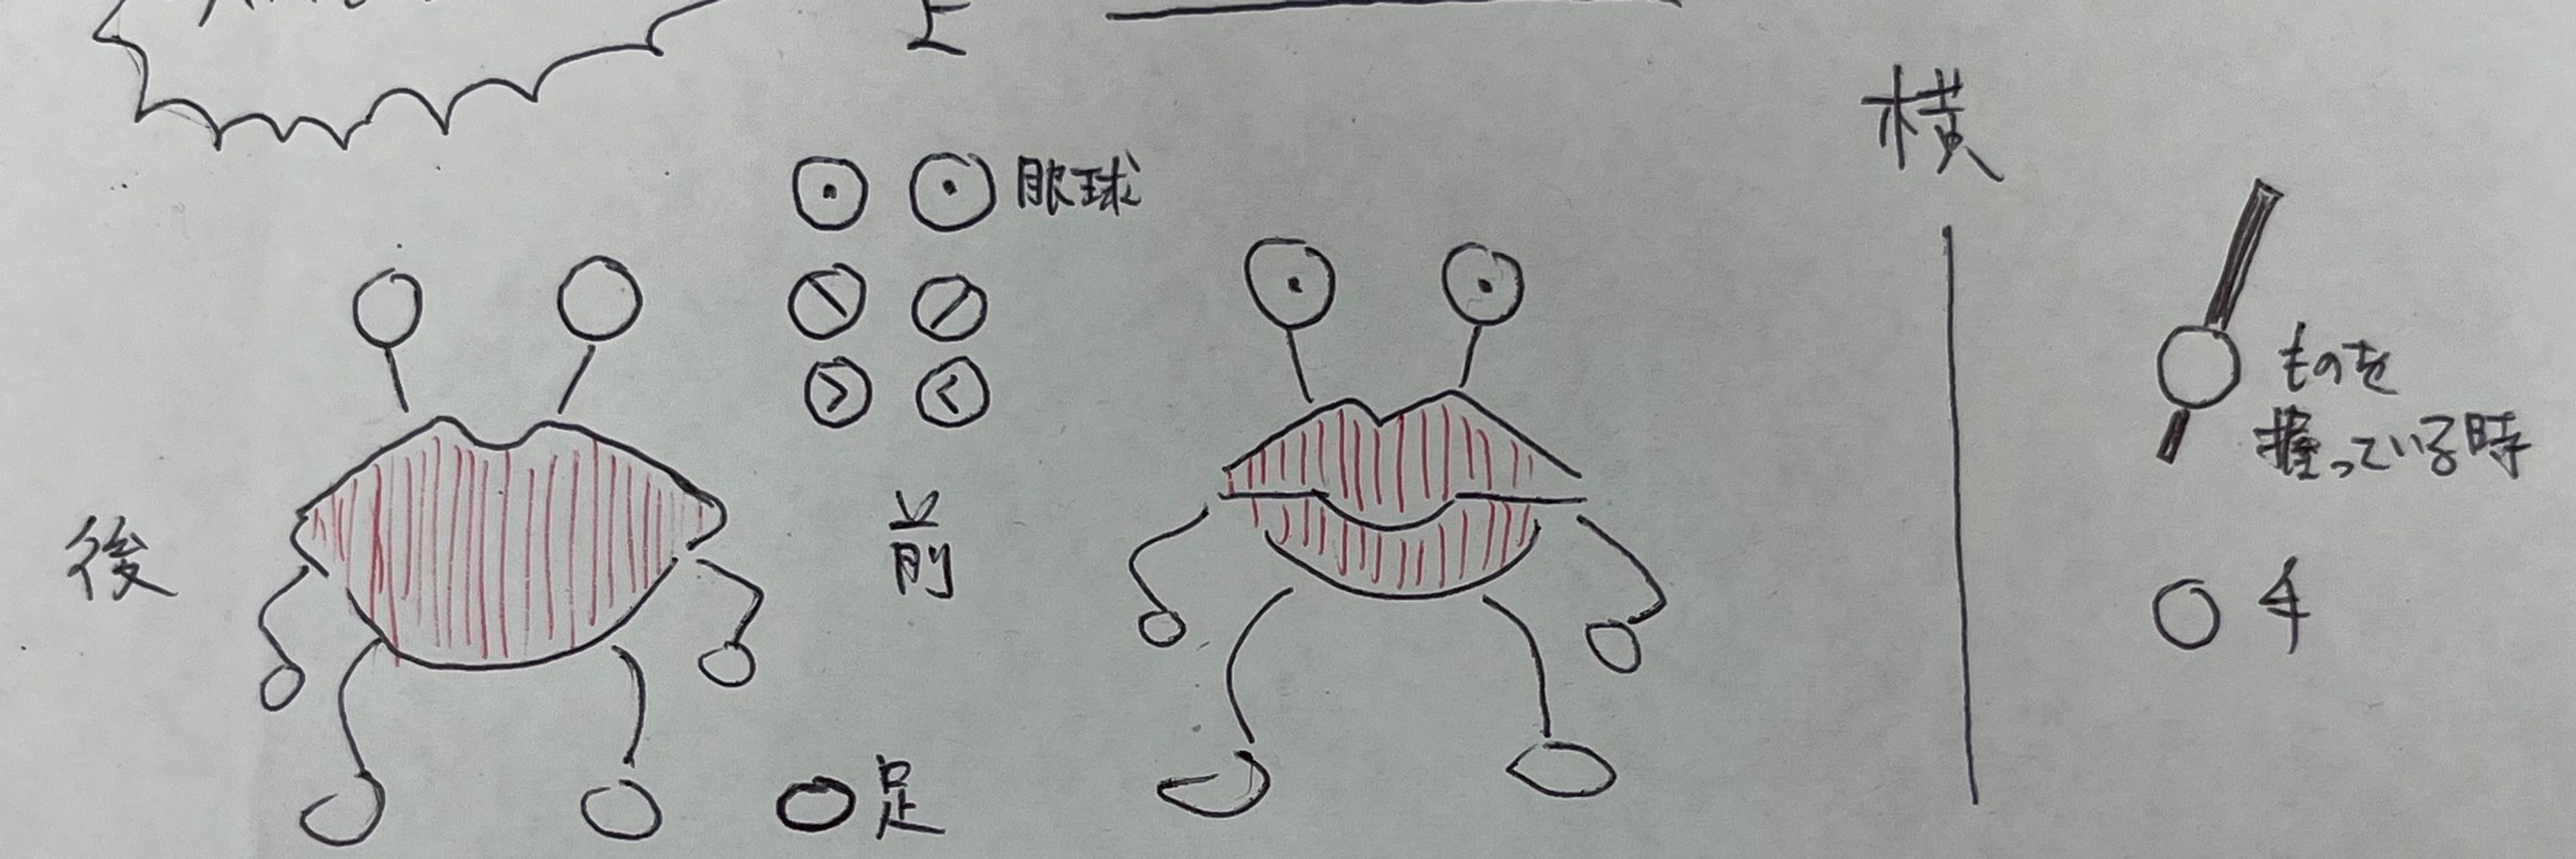 上
横
眼球
ものを
握っている時
後
前
手
足